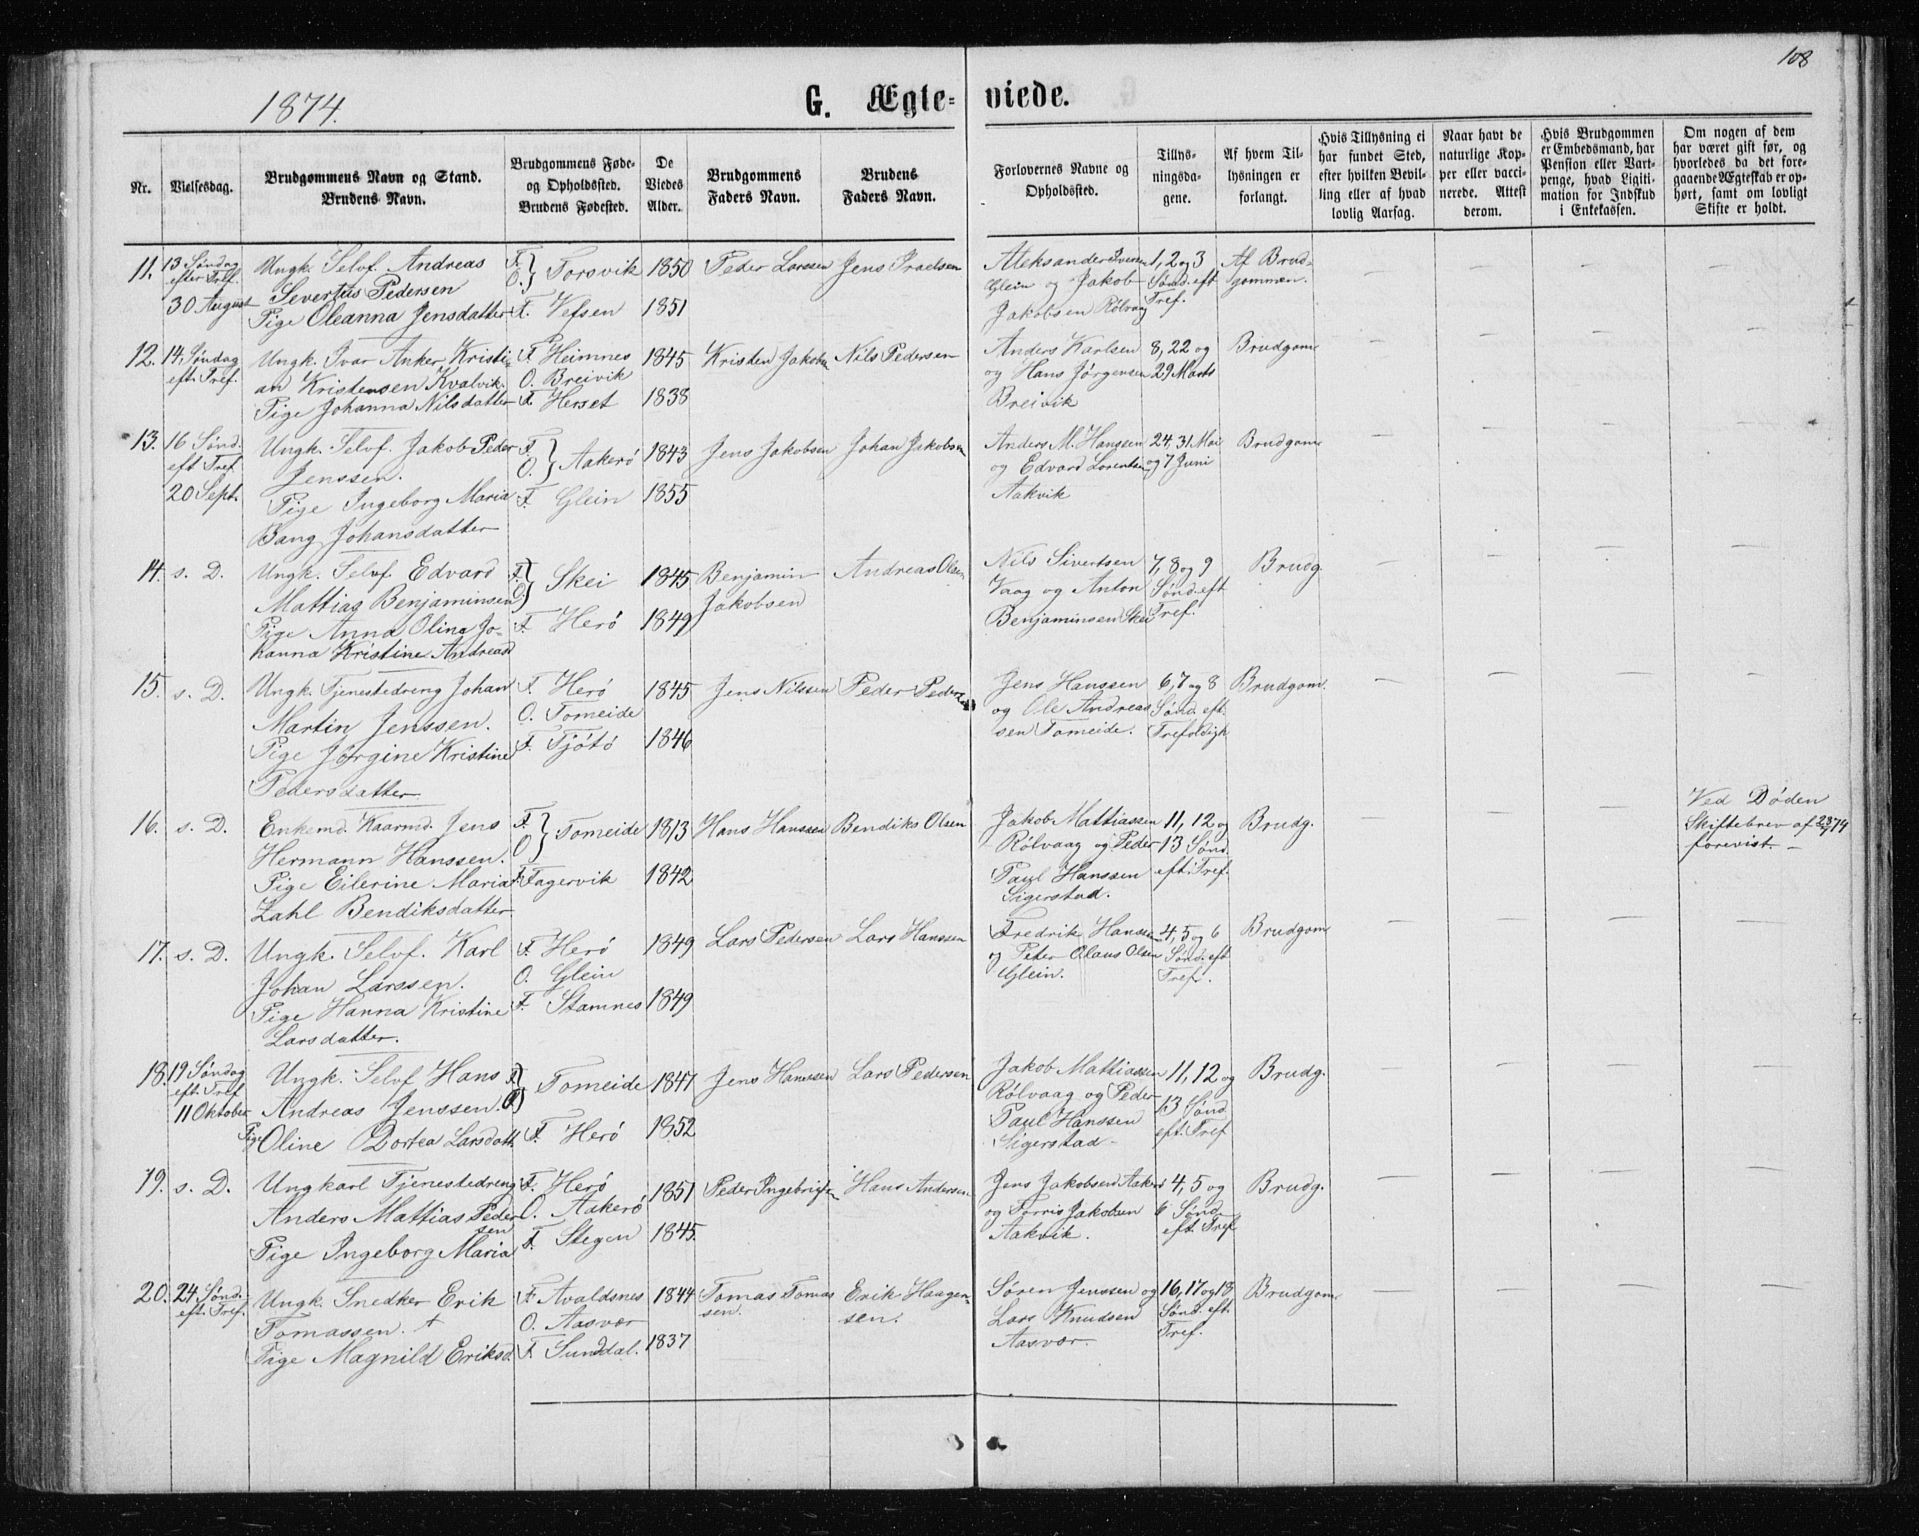 108
1874.
G. Ægte-viede.
Nr.
Vielsesdag.
Brudgommens Navn og Stand.
Brudens Navn.
Brudgommens Føde-
og Opholdssted.
Brudens Fødested.
De
Viedes
Alder.
Brudgommens
Faders Navn.
Brudens
Faders Navn.
Forlovernes Navne og
Opholdssted.
Tillys-
ningsda-
gene.
Af hvem Til-
lysningen er
forlangt.
Hvis Tillysning ei
har fundet Sted,
efter hvilken Bevil-
ling eller af hvad
lovlig Aarsag.
Naar havt de
naturlige Kop-
per eller vacci-
nerede. Attest
derom.
Hvis Brudgommen
er Embedsmand, har
Pension eller Vart-
penge, hvad Ligiti-
mation for Indskud
i Enkekassen.
Om nogen af dem
har været gift før, og
hvorledes da det fore-
gaaende Ægteskab er op-
hørt, samt om lovligt
Skifte er holdt.
11. 13 Søndag
efter Tref.
30 August
Ungk. Selvf. Andreas
Severtus Pedersen
Pige Oleanna Jensdatter
F. O. } Torsvik
F. Vefsen
1850
1851
Peder Larssen
Jens Praelsen
Aleksander Iversen
Glein og Jakob
Jakobsen Rølvaag
1, 2 og 3
Sønd. eft
Tref.
Af Brud-
gommen.
12. 14 Søndag
eft. Tref.
Ungk. Ivar Anker Kristi-
an Kristensen Kvalvik
Pige Johanna Nilsdatter
F. Heimnes
O. Breivik
F. Herset
1845
1838
Kristen Jakobsen
Nils Pedersen
Anders Karlsen
og Hans Jørgensen
Breivik
8, 22 og
29 Marts
Brudgom.
13. 16 Sønd.
eft Tref.
20 Sept.
Ungk. Selvf. Jakob Peder
Jenssen.
Pige Ingeborg Maria
Bang Johansdatter
F. O. } Aakerø
F. Glein
1843
1855
Jens Jakobsen
Johan Jakobsen
Anders M. Hanssen
og Edvard Lorentsen
Aakvik
24, 31 Mai
og 7 Juni
Brudgom
14. s. D.
Ungk. Selvf. Edvard
Mattias Benjaminsen
Pige Anna Olina Jo-
hanna Kristine Andreasd
F. O. } Skei
F. Herø
1845
1849
Benjamin
Jakobsen
Andreas Olsen
Nils Sivertsen
Vaag og Anton
Benjaminsen Skei
7, 8 og 9
Sønd. eft
Tref.
Brudg.
15. s. D.
Ungk. Tjenestedreng Johan
Martin Jenssen.
Pige Jørgine Kristine
Pedersdatter
F. Herø
O. Tomeide
F. Tjøtø
1845
1846
Jens Nilssen
Peder Pedersen
Jens Hanssen
og Ole Andreas
sen Tomeide.
6, 7 og 8
Sønd. eft.
Trefoldigh
Brudgom.
16. s. D.
Enkemd. Kaarmd. Jens
Hermann Hanssen.
Pige Eilerine Maria
Zahl Bendiksdatter
F. O. } Tomeide
F. Fagervik
1813
1842
Hans Hanssen
Bendiks Olsen
Jakob Mattiassen
Rølvaag og Peder
Paul Hanssen
Sigerstad.
11, 12 og
13 Sønd.
eft. Tref.
Brudg.
Ved Døden
Skiftebrev af 74
forevist. -
17. s. D.
Ungk. Selvf. Karl
Johan Larssen.
Pige Hanna Kristine
Larsdatter.
F. Herø
O. Glein
F. Stamnes
1849
1849
Lars Pedersen
Lars Hanssen
Fredrik Hanssen
og Peter Olaus Olsen
Glein.
4, 5 og 6
Sønd. eft
Tref.
Brudgom
18. 19 Søndag
eft. Tref
11 Oktober
Ungk. Selvf Hans
Andreas Jenssen.
Pige Oline Dortea Larsdatt.
F. O. } Tomeide
F. Herø
1847
1852
Jens Hanssen
Lars Pedersen
Jakob Mattiassen
Rølvaag og Peder
Paul Hanssen
Sigerstad-
11, 12 og
13 Sønd
eft. Tref
Brudg.
19. s. D.
Ungkarl Tjenestedreng
Anders Mattias Peder
sen
Pige Ingeborg Maria
F. Herø
O. Aakerø
F. Stegen
1851
1845.
Peder Ingebrigtsen
Hans Andersen
Jens Jakobsen Aakerø
og Torris Jakobsen
Aakvik.
4, 5 og
6 Sønd
eft. Tref
Brudg.
20. 24 Sønd.
eft. Tref.
Ungk. Snedker Erik
Tomassen.
Pige Magnild Eriksd.
F. Avaldsnes
O. Aasvær
F. Sunddal.
1844
1837
Tomas Tomas
sen.
Erik Haagen-
sen.
Søren Jenssen og
Lars Knudsen
Aasvær.
16, 17 og 18
Sønd. eft.
Tref.
Brudgom